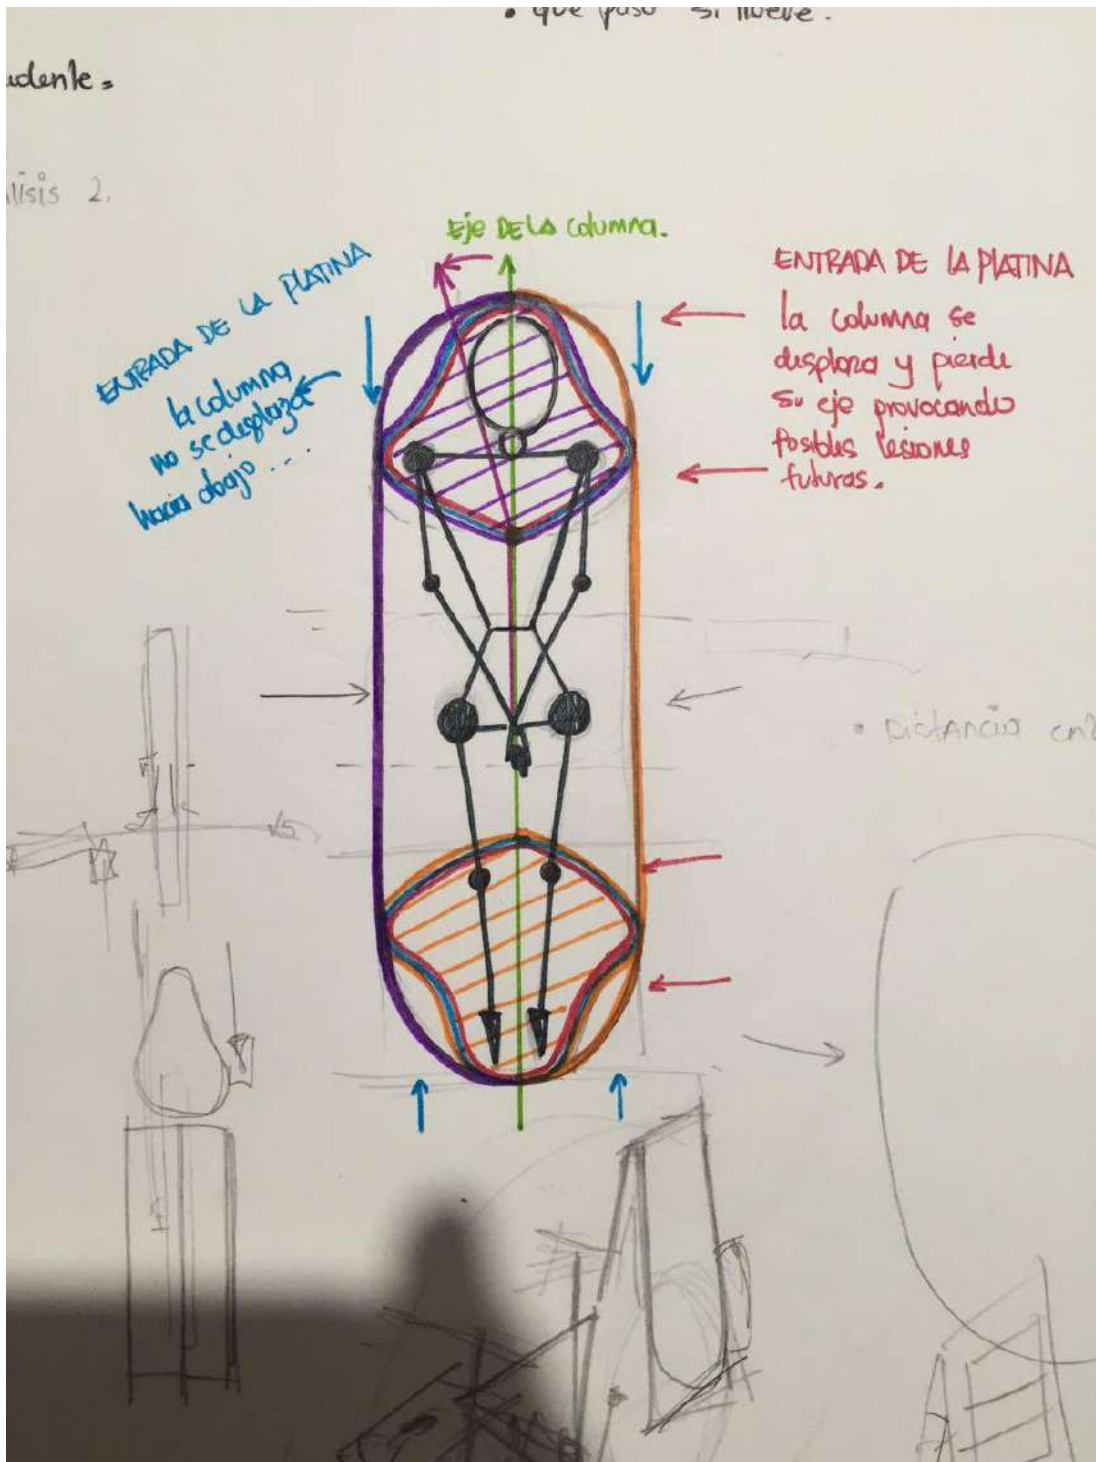 • que pasa si llueve.
udente =
lisis 2.
Eje DE LA columna.
ENTRADA DE LA PLATINA
la columna
no se desplaza
hacia abajo ....
ENTRADA DE LA PLATINA
la columna se
desplaza y pierde
su eje provocando
posibles lesiones
futuras.
• DISTANCIA